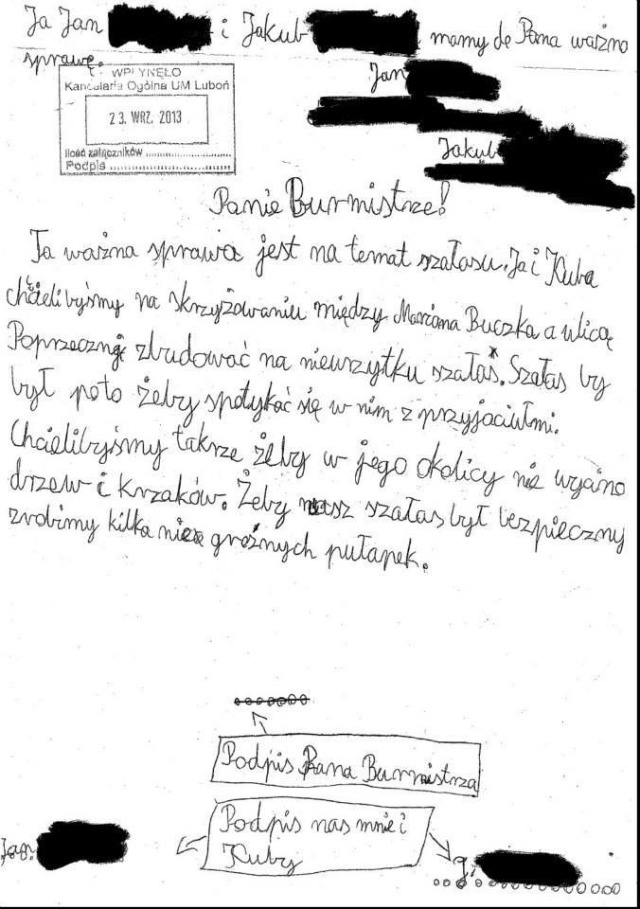 Ja Jan i Jakub mamy do Pana ważno
sprawę.
WPŁYNĘŁO
Kancelaria Ogólna UM Luboń
23. WRZ. 2013
Ilość załączników
Podpis
Jan
Jakub
Panie Burmistrze!
Ta ważna sprawa jest na temat szałasu. Ja i Kuba
chcielibyśmy na skrzyżowaniu między Mariana Buczka a ulicą
Poprzeczną zbudować na nieurzytku szałas. Szałas by
był poto żeby spotykać się w nim z przyjaciułmi.
Chcielibyśmy takrze żeby w jego okolicy nie wycino
drzew i krzaków. Żeby nasz szałas był bezpieczny
zrobimy kilka nie groźnych pułapek.
Podpis Pana Burmistrza
Podpis nas mnie i
Kuby
Jan
J.